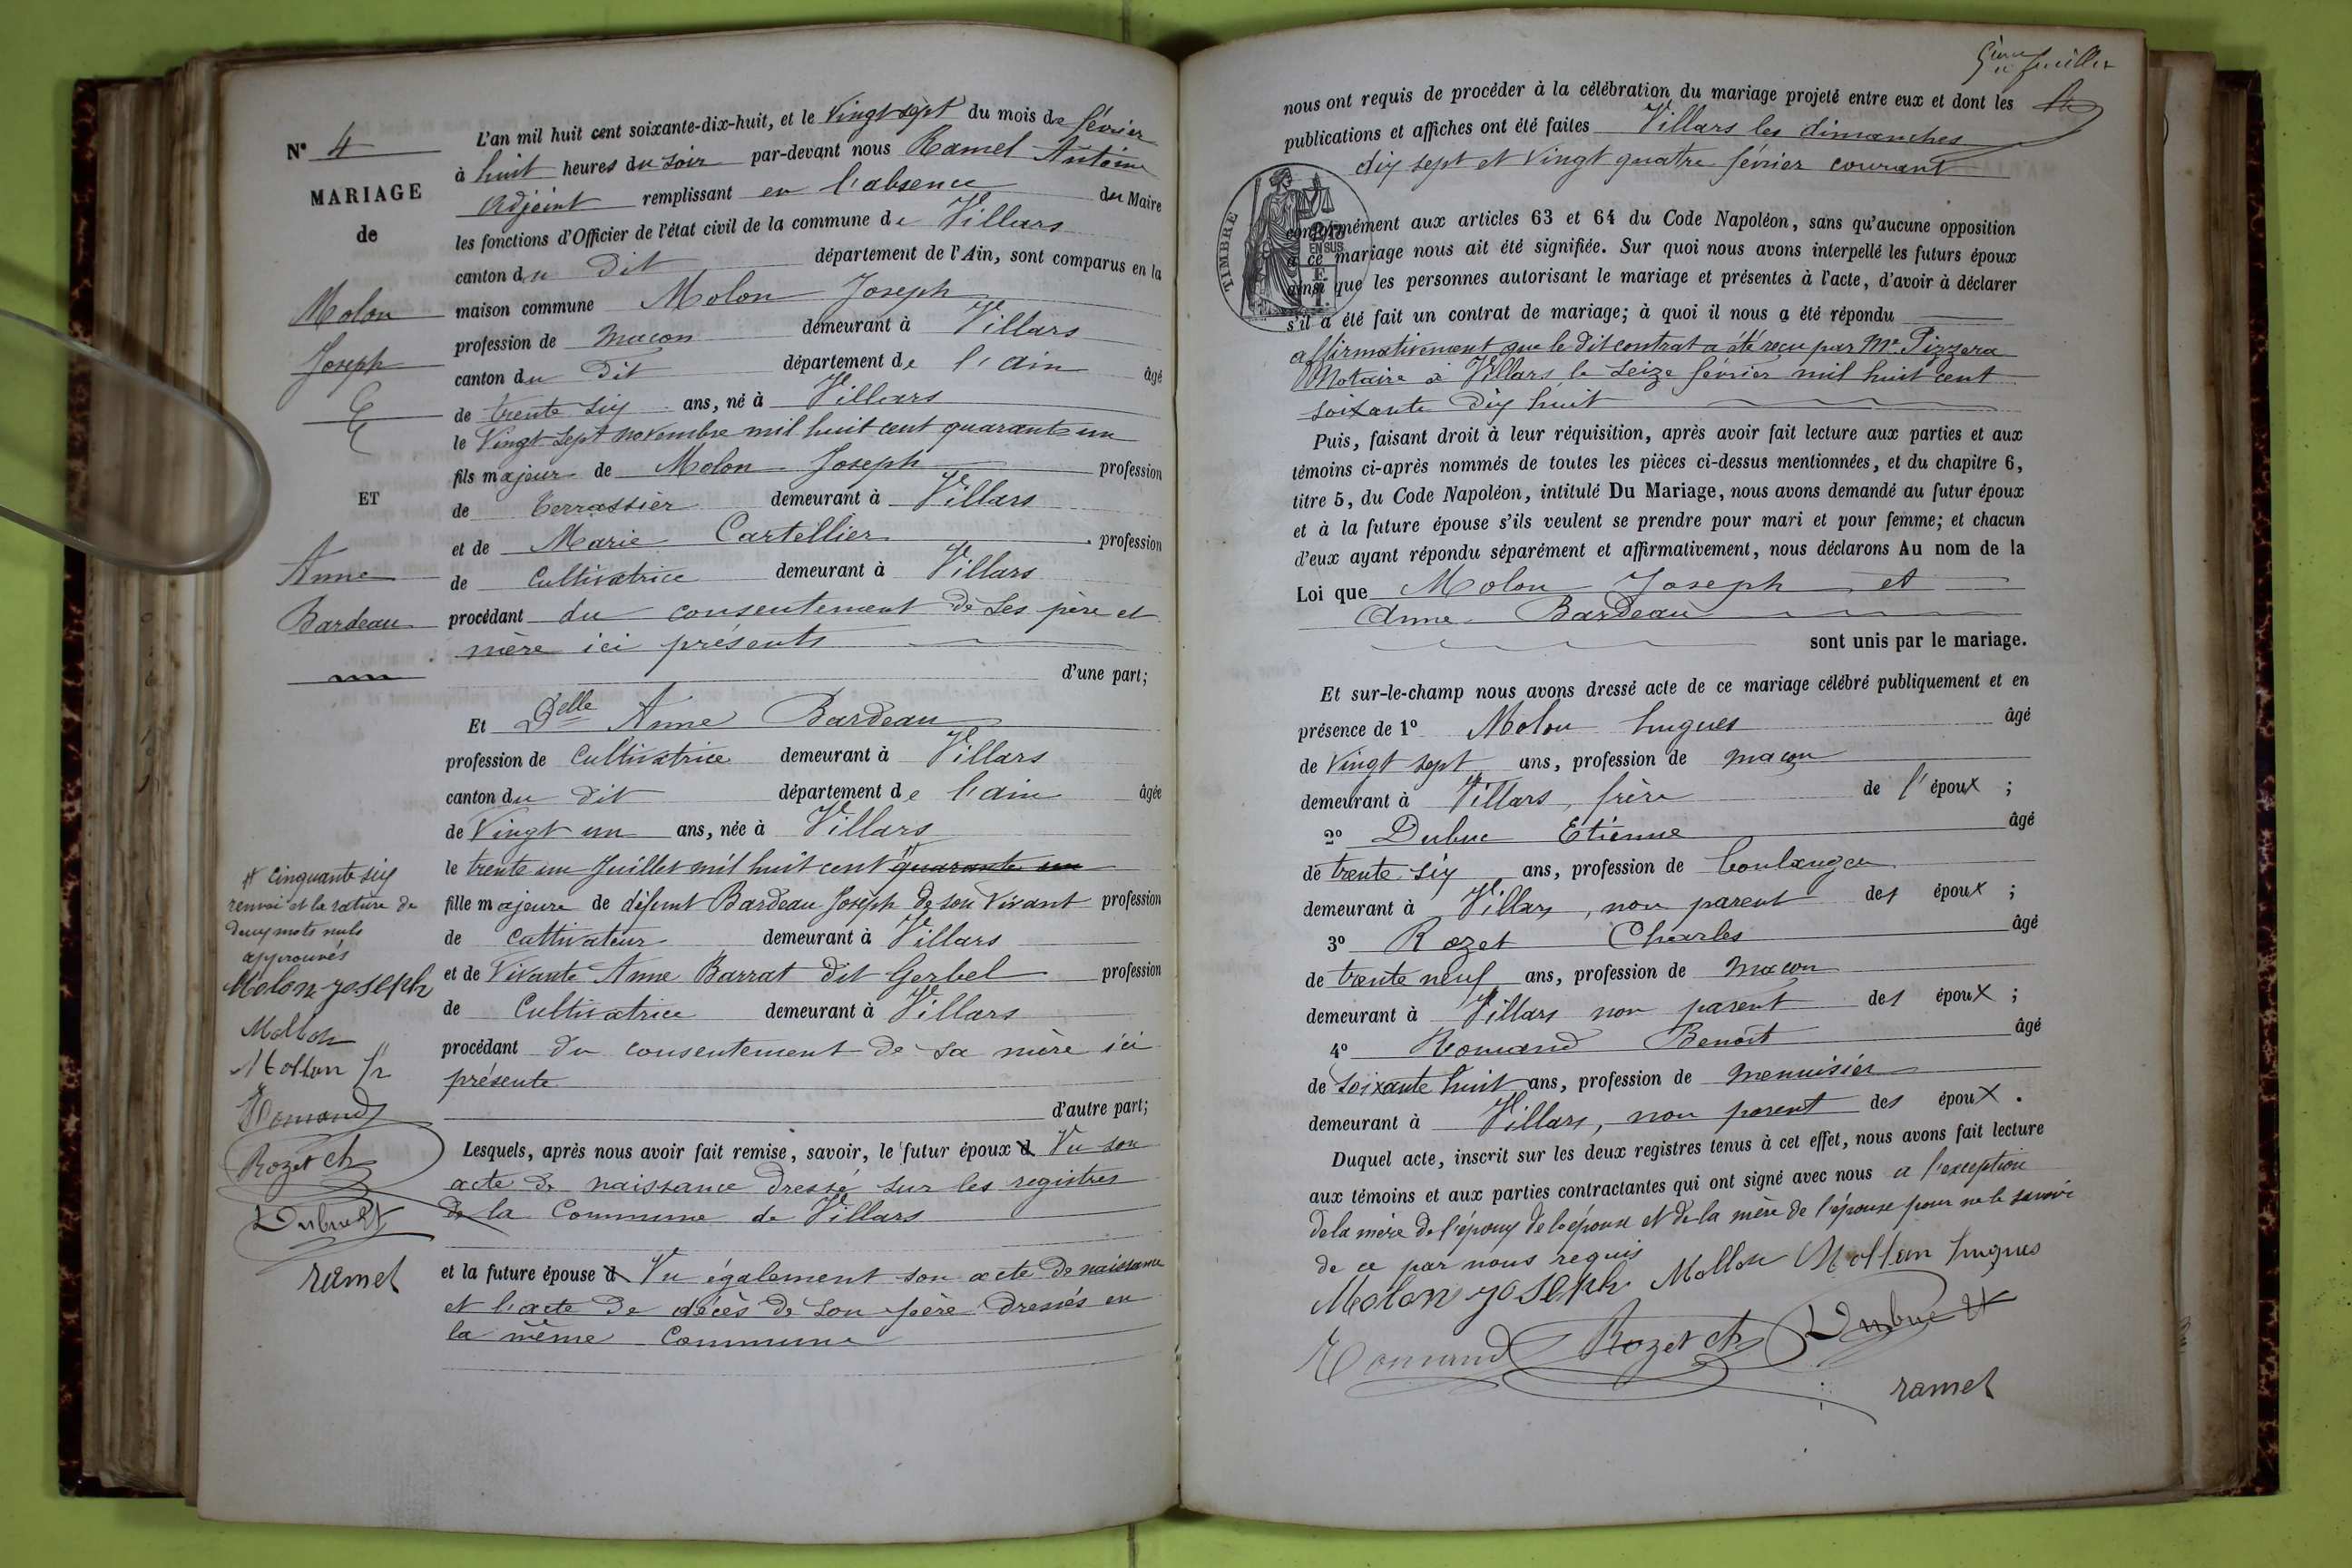 N° 4
MARIAGE
de
Molon
Joseph
ET
Anne
Bardeau
L'an mil huit cent soixante-dix-huit, et le vingt sept du mois de février
à huit heures du soir par-devant nous Ramel Antoine
adjoint remplissant en l'absence du Maire
les fonctions d'Officier de l'état civil de la commune de Villars
canton du dit département de l'Ain, sont comparus en la
maison commune Molon Joseph
profession de maçon demeurant à Villars
canton du dit département de l'ain âgé
de trente six ans, né à Villars
le vingt sept novembre mil huit cent quarante un
fils majeur de Molon Joseph profession
de terrassier demeurant à Villars
et de Marie Cartellier profession
de cultivatrice demeurant à Villars
procédant du consentement de ses père et
mère ici présents
d'une part;
Et Delle Anne Bardeau
profession de cultivatrice demeurant à Villars
canton du dit département de l'ain âgée
de vingt un ans, née à Villars
le trente un juillet mil huit cent # quarante un
fille majeure de défunt Bardeau Joseph de son vivant profession
de cultivateur demeurant à Villars
et de vivante Anne Barrat dit Gerbel profession
de cultivatrice demeurant à Villars
procédant du consentement de sa mère ici
présente
d'autre part;
Lesquels, après nous avoir fait remise, savoir, le futur époux d Vu son
acte de naissance dressé sur les registres
de la Commune de Villars
et la future épouse d Vu également son acte de naissance
et l'acte de décès de son père dressés en
la même Commune
# cinquante six
renvoi et la rature de
deux mots nuls
approuvés
Molon joseph
Mollon
Mollon h
Romand
Rozet ch
Dubuc Et
ramel
5ième feuillet
nous ont requis de procéder à la célébration du mariage projeté entre eux et dont les
publications et affiches ont été faites Villars les dimanches
dix sept et vingt quatre février courant
TIMBRE
EN SUS
conformément aux articles 63 et 64 du Code Napoléon, sans qu'aucune opposition
à ce mariage nous ait été signifiée. Sur quoi nous avons interpellé les futurs époux
ainsi que les personnes autorisant le mariage et présentes à l'acte, d'avoir à déclarer
s'il a été fait un contrat de mariage; à quoi il nous a été répondu
affirmativement que le dit contrat a été reçu par Me Pizzera
Notaire à Villars le seize février mil huit cent
soixante dix huit
Puis, faisant droit à leur réquisition, après avoir fait lecture aux parties et aux
témoins ci-après nommés de toutes les pièces ci-dessus mentionnées, et du chapitre 6,
titre 5, du Code Napoléon, intitulé Du Mariage, nous avons demandé au futur époux
et à la future épouse s'ils veulent se prendre pour mari et pour femme; et chacun
d'eux ayant répondu séparément et affirmativement, nous déclarons Au nom de la
Loi que Molon Joseph et
Anne Bardeau
sont unis par le mariage.
Et sur-le-champ nous avons dressé acte de ce mariage célébré publiquement et en
présence de 1° Molon hugues âgé
de vingt sept ans, profession de maçon
demeurant à Villars, frère de l'époux ;
2° Dubuc Etienne âgé
de trente six ans, profession de boulanger
demeurant à Villars, non parent des époux ;
3° Rozet Charles âgé
de trente neuf ans, profession de maçon
demeurant à Villars non parent des époux ;
4° Romand Benoit âgé
de soixante huit ans, profession de menuisier
demeurant à Villars, non parent des époux .
Duquel acte, inscrit sur les deux registres tenus à cet effet, nous avons fait lecture
aux témoins et aux parties contractantes qui ont signé avec nous a l'exception
de la mère de l'époux de l'épouse et de la mère de l'épouse pour ne le savoir
de ce par nous requis
Molon joseph Mollon Mollon hugues
Romand Rozet ch Dubuc Et
ramel